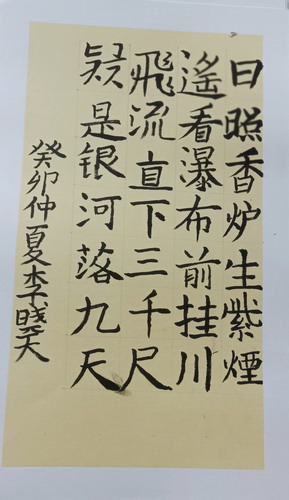 日照香炉生紫煙
遥看瀑布前挂川
飛流直下三千尺
疑是银河落九天
癸卯仲夏李晓天